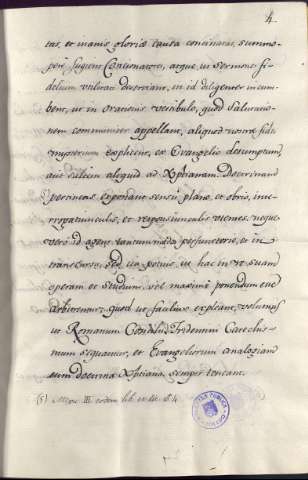 4.
tas, et inanis gloriæ causa concinatas, summo-
peré fugient Concionatores, atque ut sermone fi-
delium utilitati deserviant, in id diligenter incum-
bent, ut in orationis vestibulo, quod Salutatio-
nem communiter appellant, aliquod nostræ fidei
mysterium explicent, ex Evangelio desumptum,
aut saltem aliquid ad Xptianam Doctrinam
pertinens exponant sensu plano, et obvio, inte-
rrogatiunculis, et responsiunculis utentes. neque
veró id agent tantummodo perfunctorie, et in
transcursu, sed ita potius, ut hac in re suam
operam et studium vel maximé ponendum esse
arbitrentur; quod ut facilius expleant, volumus
ut Romanum Concilii Tridentini Catechis-
mum sequantur, et Evangeliorum analogiam
cum doctrina Xptiana semper teneant.
(5) III. eodem lib. et tit. 4